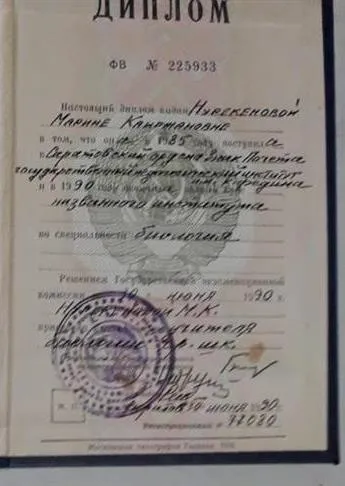 ДИПЛОМ
ФВ № 225933
Настоящий диплом выдан Нурекеновой
Марине Каиржановне
в том, что она в 1985 году поступила
в Саратовский ордена Знак Почета
государственный педагогический институт
и в 1990 году окончила полный курс
названного института
по специальности биология
Решением Государственной экзаменационной
комиссии 30 июня 1990 г.
Нурекеновой М.К.
учителя
биологии ср. шк.
М. П.
30 июня 1990 г.
Регистрационный № 77080
Московская типография Гознака. 19